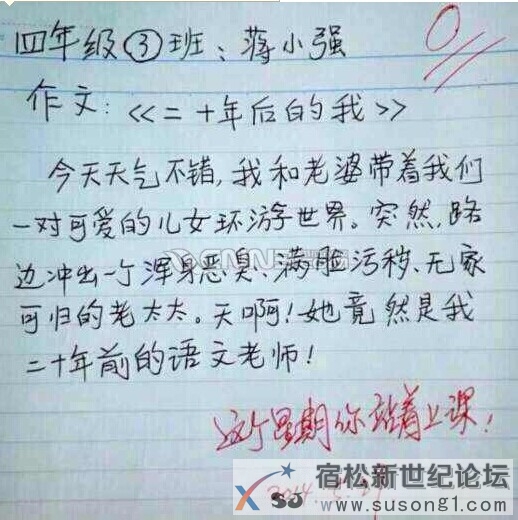 四年级③班：蒋小强
0
作文：《二十年后的我》
今天天气不错，我和老婆带着我们
一对可爱的儿女环游世界。突然，路
边冲出一个浑身恶臭、满脸污秽、无家
可归的老太太。天啊！她竟然是我
二十年前的语文老师！
这个星期你站着上课！
宿松新世纪论坛
www.susong1.com